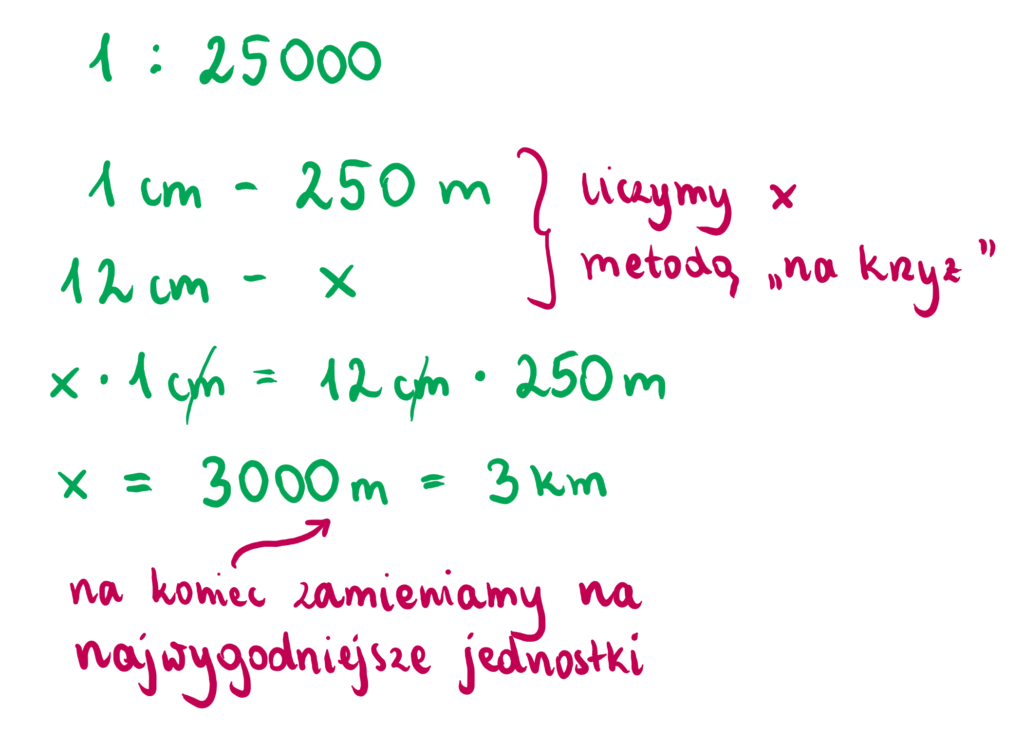 1 : 25000
1 cm - 250 m
liczymy x
12 cm - x
metodą „na krzyż”
x · 1 cm = 12 cm · 250 m
x = 3000 m = 3 km
na koniec zamieniamy na
najwygodniejsze jednostki